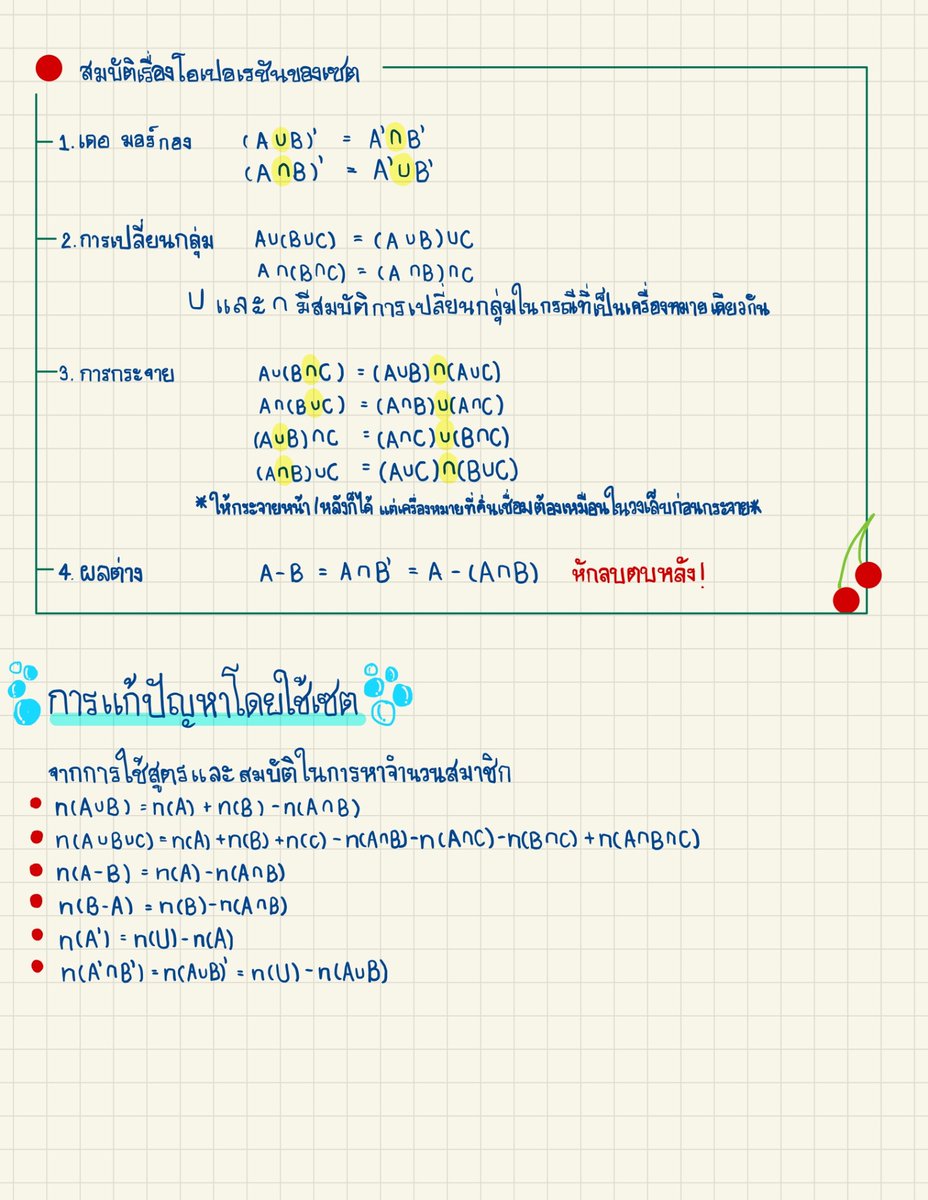 สมบัติเรื่องโอเปอเรชันของเซต
1. เดอ มอร์กอง (A∪B)' = A'∩B'
(A∩B)' = A'∪B'
2. การเปลี่ยนกลุ่ม A∪(B∪C) = (A∪B)∪C
A∩(B∩C) = (A∩B)∩C
∪ และ ∩ มีสมบัติการเปลี่ยนกลุ่มในกรณีที่เป็นเครื่องหมายเดียวกัน
3. การกระจาย A∪(B∩C) = (A∪B)∩(A∪C)
A∩(B∪C) = (A∩B)∪(A∩C)
(A∪B)∩C = (A∩C)∪(B∩C)
(A∩B)∪C = (A∪C)∩(B∪C)
*ให้กระจายหน้า/หลังก็ได้ แต่เครื่องหมายที่คั่นเชื่อมต้องเหมือนในวงเล็บก่อนกระจาย*
4. ผลต่าง A-B = A∩B' = A-(A∩B) หักลบตบหลัง!
การแก้ปัญหาโดยใช้เซต
จากการใช้สูตรและสมบัติในการหาจำนวนสมาชิก
• n(A∪B) = n(A) + n(B) - n(A∩B)
• n(A∪B∪C) = n(A) + n(B) + n(C) - n(A∩B) - n(A∩C) - n(B∩C) + n(A∩B∩C)
• n(A-B) = n(A) - n(A∩B)
• n(B-A) = n(B) - n(A∩B)
• n(A') = n(U) - n(A)
• n(A'∩B') = n(A∪B)' = n(U) - n(A∪B)